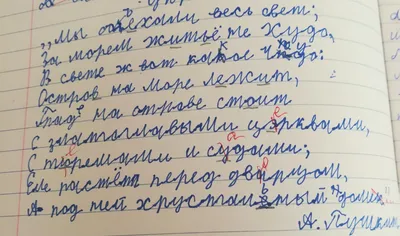 „Мы объехали весь свет;
За морем житьё не худо,
В свете ж вот какое чудо:
Остров на море лежит,
Град на отрове стоит
С златоглавыми церквами,
С теремами и садами;
Ель растёт перед дворцом,
А под ней хрустальный дом
А. Пушкин